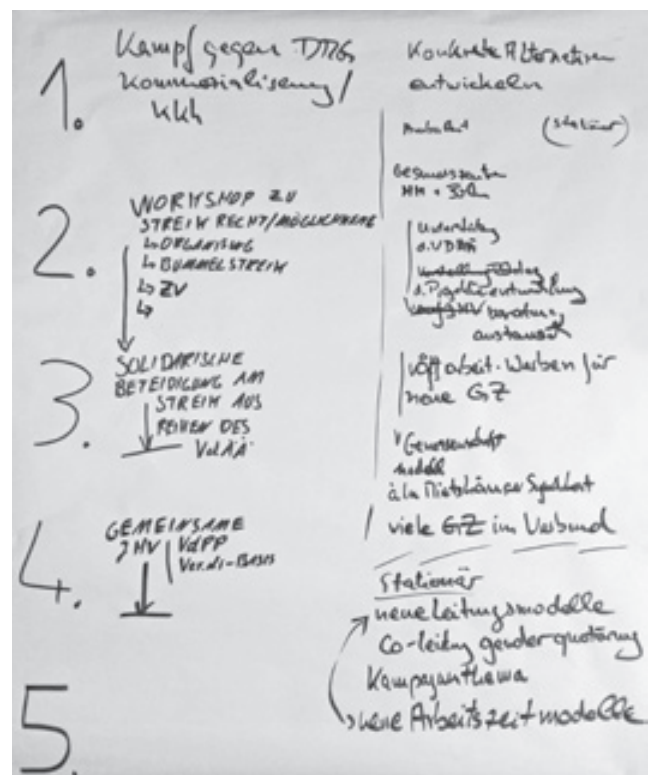 1. Kampf gegen DRGs
Kommerzialisierung /
KKh
2. WORKSHOP ZU
STREIK RECHT/MÖGLICHKEITE
↳ ORGANISING
↳ BUMMELSTREIK
↳ ZV
↳
3. SOLIDARISCHE
BETEIDIGUNG AM
STREIK AUS
REIHEN DES
VdÄÄ
4. GEMEINSAME
JHV VdPP
Ver.di-BASIS
5.
Konkrete Alternativen
entwickeln
Ambulant (stationär)
Gesundheitszentren
HH + Berlin
Unterstützung
d. VDÄÄ
d. Projektentwicklung
beratung,
austausch
Öff arbeit - Werben für
neue GZ
Genossenschaft
modell
à la Mietshäuser Syndikat
viele GZ im Verbund
Stationär
neue Leitungsmodelle
Co-leitung genderquotierung
Kampagnenthema
neue Arbeitszeitmodelle